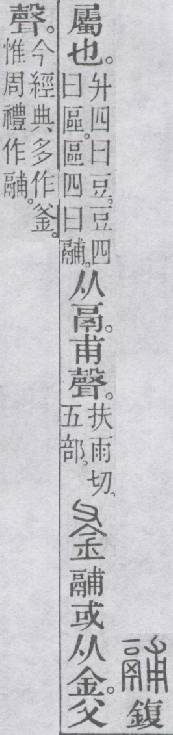 鬴 鍑
屬也。升四曰豆。豆四曰區。區四曰鬴。从鬲。甫聲。扶雨切。五部。釜 鬴或从金。父
聲。今經典多作釜。惟周禮作鬴。